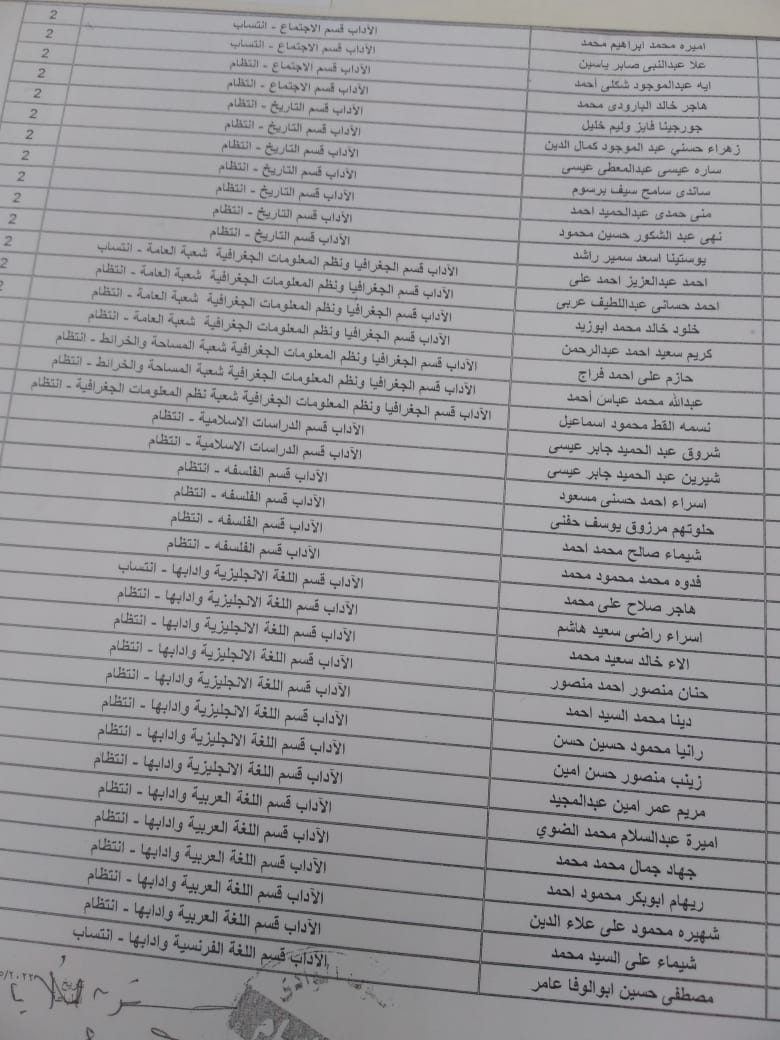 اميره محمد ابراهيم محمد الآداب قسم الاجتماع - انتساب 2
علا عبدالنبى صابر ياسين الآداب قسم الاجتماع - انتساب 2
ايه عبدالموجود شكلى أحمد الآداب قسم الاجتماع - انتظام 2
هاجر خالد البارودى محمد الآداب قسم الاجتماع - انتظام 2
جورجينا فايز وليم خليل الآداب قسم التاريخ - انتظام 2
زهراء حسني عبد الموجود كمال الدين الآداب قسم التاريخ - انتظام 2
ساره عيسى عبدالمعطى عيسى الآداب قسم التاريخ - انتظام 2
ساندى سامح سيف برسوم الآداب قسم التاريخ - انتظام 2
منى حمدى عبدالحميد احمد الآداب قسم التاريخ - انتظام 2
نهى عبد الشكور حسين محمود الآداب قسم التاريخ - انتظام 2
يوستينا اسعد سمير راشد الآداب قسم التاريخ - انتظام 2
احمد عبدالعزيز احمد على الآداب قسم الجغرافيا ونظم المعلومات الجغرافية شعبة العامة - انتساب 2
احمد حسانى عبداللطيف عربى الآداب قسم الجغرافيا ونظم المعلومات الجغرافية شعبة العامة - انتظام 2
خلود خالد محمد ابوزيد الآداب قسم الجغرافيا ونظم المعلومات الجغرافية شعبة العامة - انتظام
كريم سعيد احمد عبدالرحمن الآداب قسم الجغرافيا ونظم المعلومات الجغرافية شعبة العامة - انتظام
حازم على احمد فراج الآداب قسم الجغرافيا ونظم المعلومات الجغرافية شعبة المساحة والخرائط - انتظام
عبدالله محمد عباس أحمد الآداب قسم الجغرافيا ونظم المعلومات الجغرافية شعبة المساحة والخرائط - انتظام
نسمه القط محمود اسماعيل الآداب قسم الجغرافيا ونظم المعلومات الجغرافية شعبة نظم المعلومات الجغرافية - انتظام
شروق عبد الحميد جابر عيسى الآداب قسم الدراسات الاسلامية - انتظام
شيرين عبد الحميد جابر عيسى الآداب قسم الدراسات الاسلامية - انتظام
اسراء احمد حسنى مسعود الآداب قسم الفلسفه - انتظام
حلوتهم مرزوق يوسف حفنى الآداب قسم الفلسفه - انتظام
شيماء صالح محمد احمد الآداب قسم الفلسفه - انتظام
فدوه محمد محمود محمد الآداب قسم الفلسفه - انتظام
هاجر صلاح على محمد الآداب قسم اللغة الانجليزية وادابها - انتساب
اسراء راضى سعيد هاشم الآداب قسم اللغة الانجليزية وادابها - انتظام
الاء خالد سعيد محمد الآداب قسم اللغة الانجليزية وادابها - انتظام
حنان منصور احمد منصور الآداب قسم اللغة الانجليزية وادابها - انتظام
دينا محمد السيد احمد الآداب قسم اللغة الانجليزية وادابها - انتظام
رانيا محمود حسين حسن الآداب قسم اللغة الانجليزية وادابها - انتظام
زينب منصور حسن امين الآداب قسم اللغة الانجليزية وادابها - انتظام
مريم عمر امين عبدالمجيد الآداب قسم اللغة الانجليزية وادابها - انتظام
اميرة عبدالسلام محمد الضوي الآداب قسم اللغة العربية وادابها - انتظام
جهاد جمال محمد محمد الآداب قسم اللغة العربية وادابها - انتظام
ريهام ابوبكر محمود احمد الآداب قسم اللغة العربية وادابها - انتظام
شهيره محمود على علاء الدين الآداب قسم اللغة العربية وادابها - انتظام
شيماء على السيد محمد الآداب قسم اللغة العربية وادابها - انتظام
مصطفى حسين ابوالوفا عامر الآداب قسم اللغة الفرنسية وادابها - انتساب